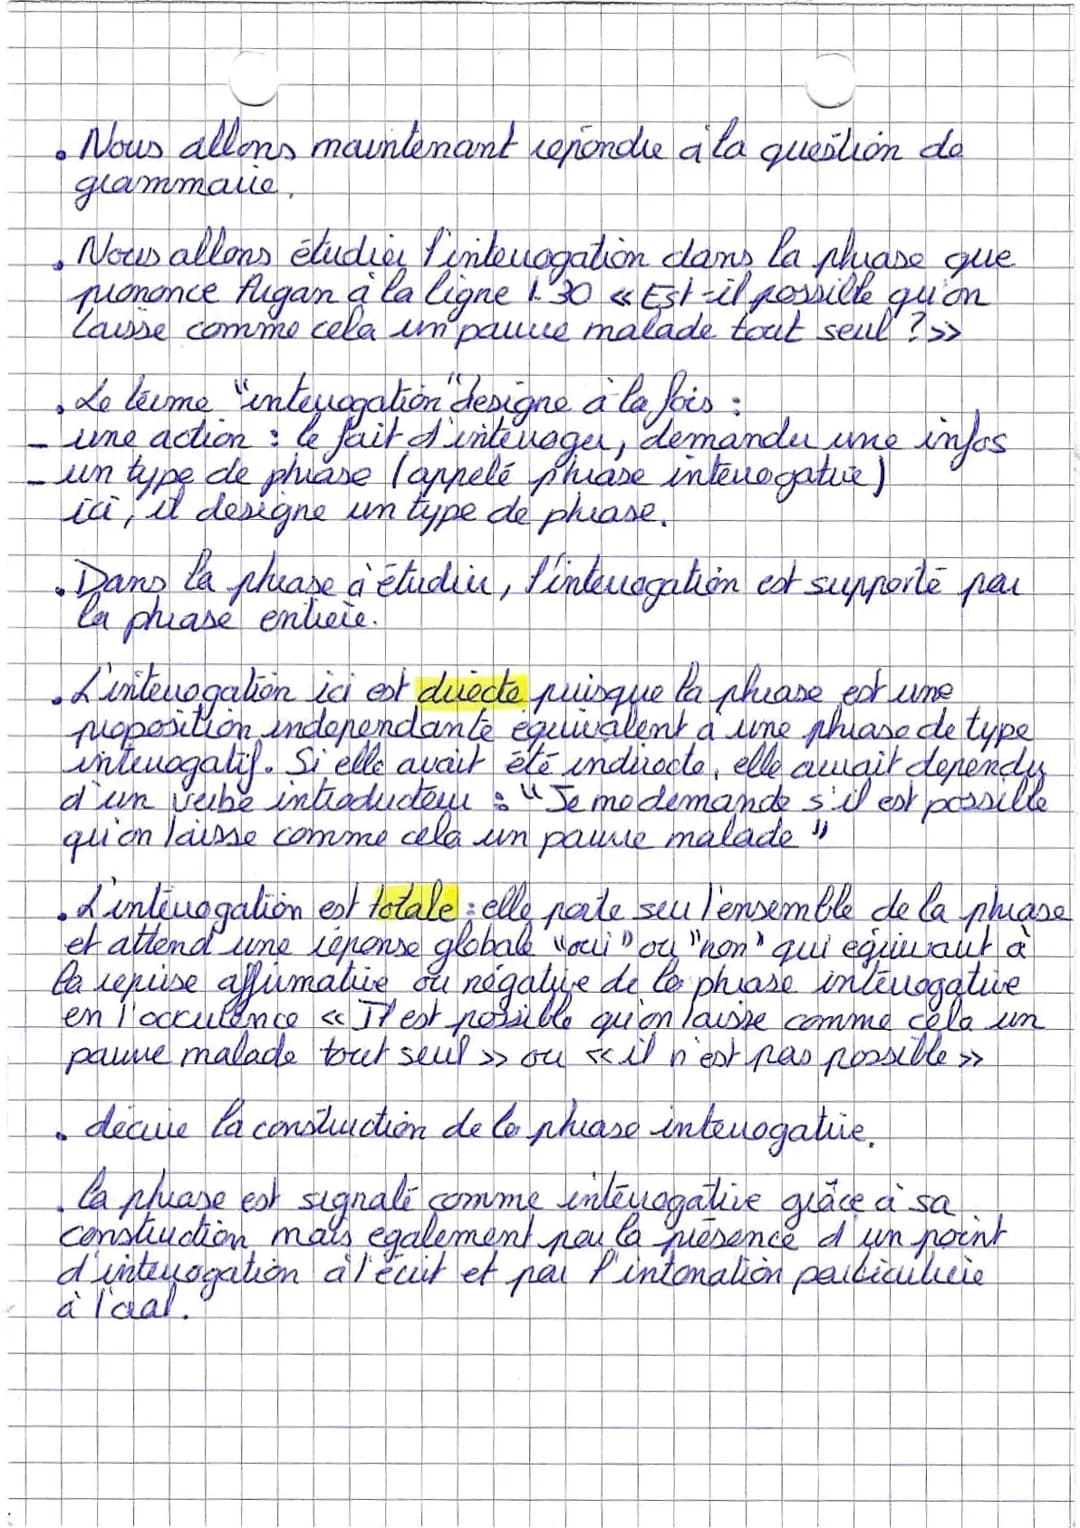 . Nous allons maintenant repondre à la question de
grammaire.
. Nous allons étudier l'interrogation dans la phrase que
prononce Argan à la ligne 1.30 « Est-il possible qu'on
laisse comme cela un pauvre malade tout seul ? »
. Le terme "interrogation" designe à la fois :
- une action : le fait d'interroger, demander une infos
- un type de phrase (appelé phrase interrogative)
ici, il designe un type de phrase.
. Dans la phrase à étudier, l'interrogation est supporté par
la phrase entiere.
. L'interrogation ici est directe puisque la phrase est une
proposition independante équivalent à une phrase de type
interrogatif. Si elle avait été indirecte, elle aurait dependu
d'un verbe introducteur : "Je me demande s'il est possible
qu'on laisse comme cela un pauvre malade"
. L'interrogation est totale : elle porte sur l'ensemble de la phrase
et attend une réponse globale "oui" ou "non" qui équivaut à
la reprise affirmative ou négative de la phrase interrogative
en l'occurence « Il est possible qu'on laisse comme cela un
pauvre malade tout seul » ou « il n'est pas possible »
. décrire la construction de la phrase interrogative.
. la phrase est signalé comme interrogative grâce à sa
construction mais egalement par la présence d'un point
d'interrogation à l'écrit et par l'intonation particulière
à l'oral.